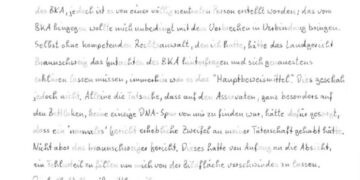 des BKA, jedoch ist es von einer völlig neutralen Person erstellt worden; das vom
BKA hingegen wollte mich unbedingt mit dem Verbrechen in Verbindung bringen.
Selbst ohne kompetenten Rechtsanwalt, den ich hatte, hätte das Landgericht
Braunschweig das Gutachten des BKA hinterfragen und sich genauestens
erklären lassen müssen, immerhin war es das "Hauptbeweismittel". Dies geschah
jedoch nicht. Alleine die Tatsache, dass auf den Asservaten, ganz besonders auf
den Zettilken, keine einzige DNA-Spur von mir zu finden war, hätte dafür gesorgt,
dass ein 'normales' Gericht erhebliche Zweifel an meiner Täterschaft gehabt hätte.
Nicht aber das braunschweiger Gericht. Dieses hatte von Anfang an die Absicht,
ein Fehlurteil zu fällen um mich von der Bildfläche verschwinden zu lassen.